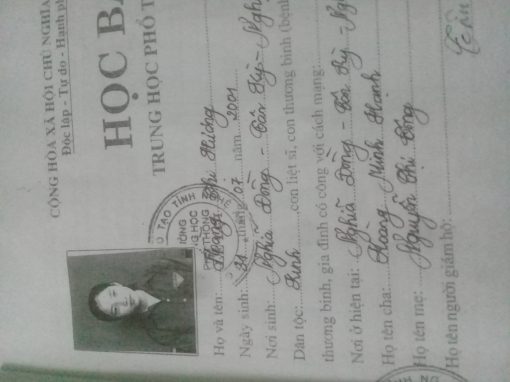 CỘNG HÒA XÃ HỘI CHỦ NGHĨA
Độc lập - Tự do - Hạnh ph
HỌC B
TRUNG HỌC PHỔ T
Họ và tên: Hoàng Thị Hương
Ngày sinh: 21 tháng 07 năm 2001
Nơi sinh: Nghĩa Đồng - Tân Kỳ - Nghệ
Dân tộc: Kinh con liệt sĩ, con thương binh (bệnh
thương binh, gia đình có công với cách mạng:
Nơi ở hiện tại: Nghĩa Đồng - Tân Kỳ - Ng
Họ tên cha: Hoàng Minh Thành
Họ tên mẹ: Nguyễn Thị Đồng
Họ tên người giám hộ:
TẠO TỈNH
ƯỜNG
PHỔ THÔNG
NG HỌC